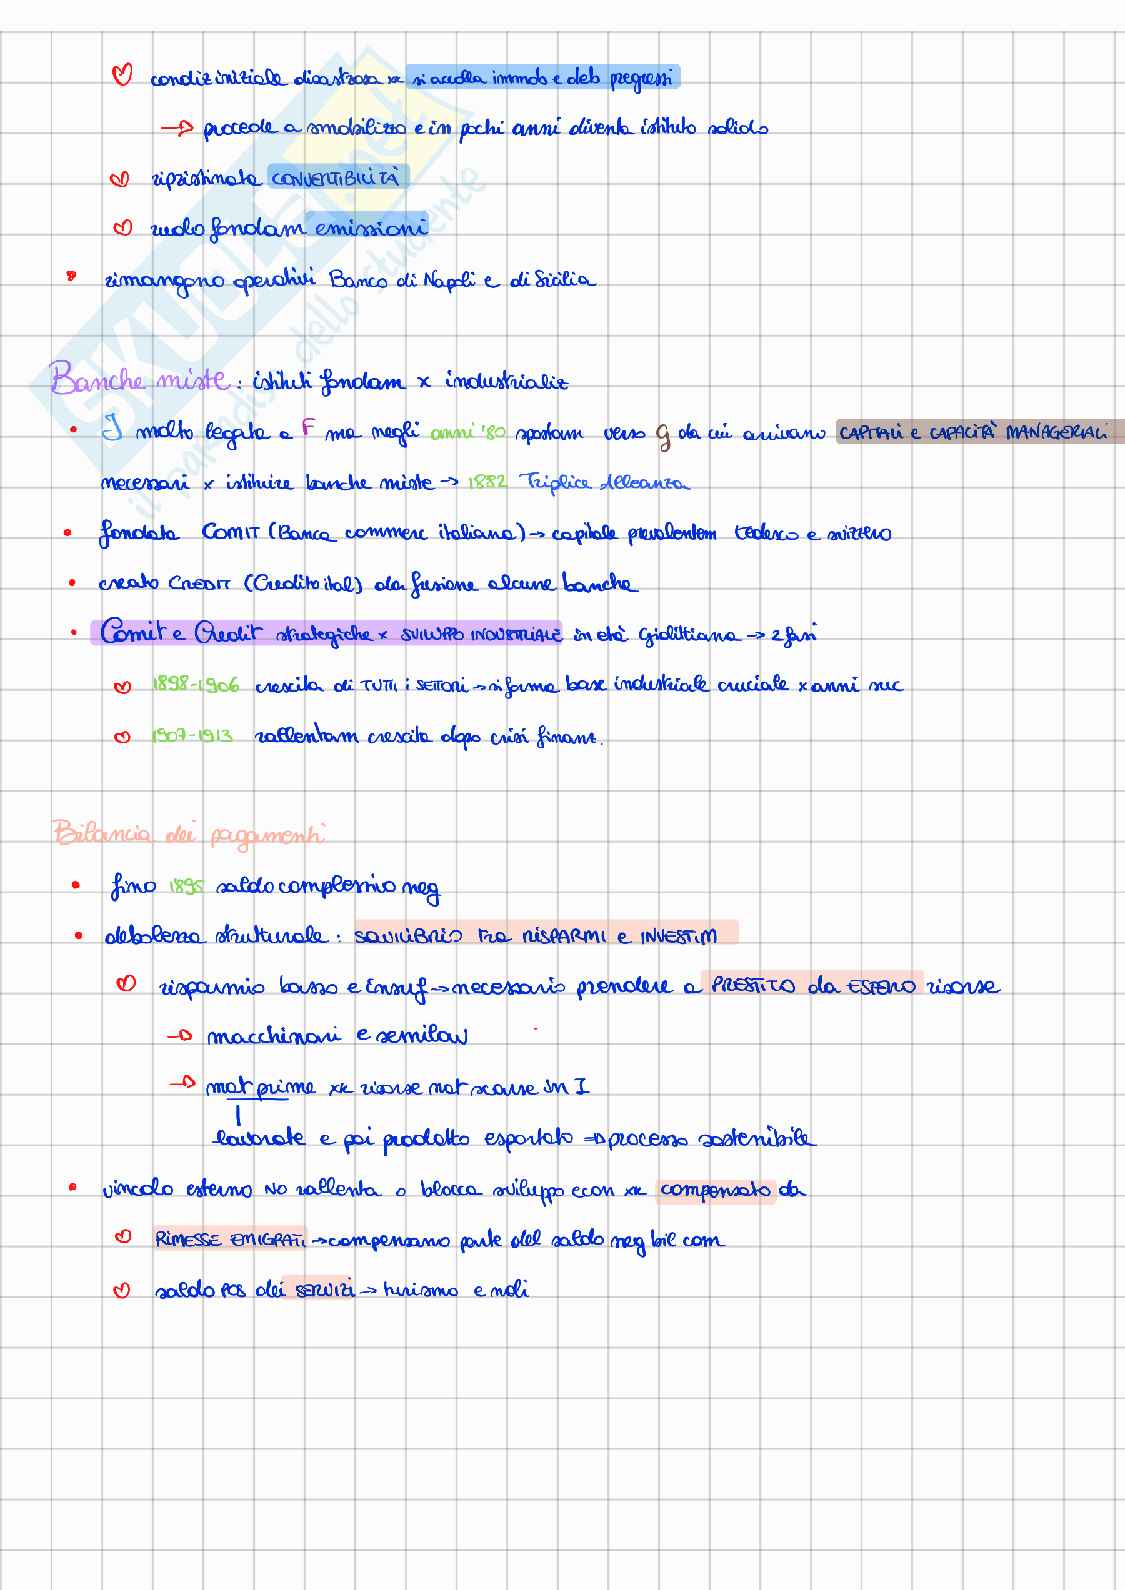 condiz iniziale disastrosa xk si accolla immob e deb pregressi
→ procede a smobilizzo e in pochi anni diventa istituto solido
ripristinata CONVERTIBILITÀ
ruolo fondam emissioni
rimangono operativi Banco di Napoli e di Sicilia
Banche miste: istituti fondam x industrializ
I molto legata a F ma negli anni '80 spostam verso G da cui arrivano CAPITALI e CAPACITÀ MANAGERIALI
necessari x istituire banche miste → 1882 Triplice Alleanza
fondata COMIT (Banca commerc italiana) → capitale prevalentem tedesco e svizzero
creato CREDIT (Credito ital) da fusione alcune banche
Comit e Credit strategiche x SVILUPPO INDUSTRIALE in età Giolittiana → 2 fasi
1898-1906 crescita di TUTTI i SETTORI → si forma base industriale cruciale x anni suc
1907-1913 rallentam crescita dopo crisi finanz.
Bilancia dei pagamenti
fino 1895 saldo complessivo neg
debolezza strutturale: SQUILIBRIO TRA RISPARMI e INVESTIM
risparmio basso e insuf → necessario prendere a PRESTITO da ESTERO risorse
→ macchinari e semilav
→ mat prime xk risorse nat scarse in I
lavorate e poi prodotto esportato → processo sostenibile
vincolo esterno NO rallenta o blocca sviluppo econ xk compensato da
RIMESSE EMIGRATI → compensano parte del saldo neg bil com
saldo POS dei SERVIZI → turismo e noli
SKUOLA.net
il paradiso dello studente